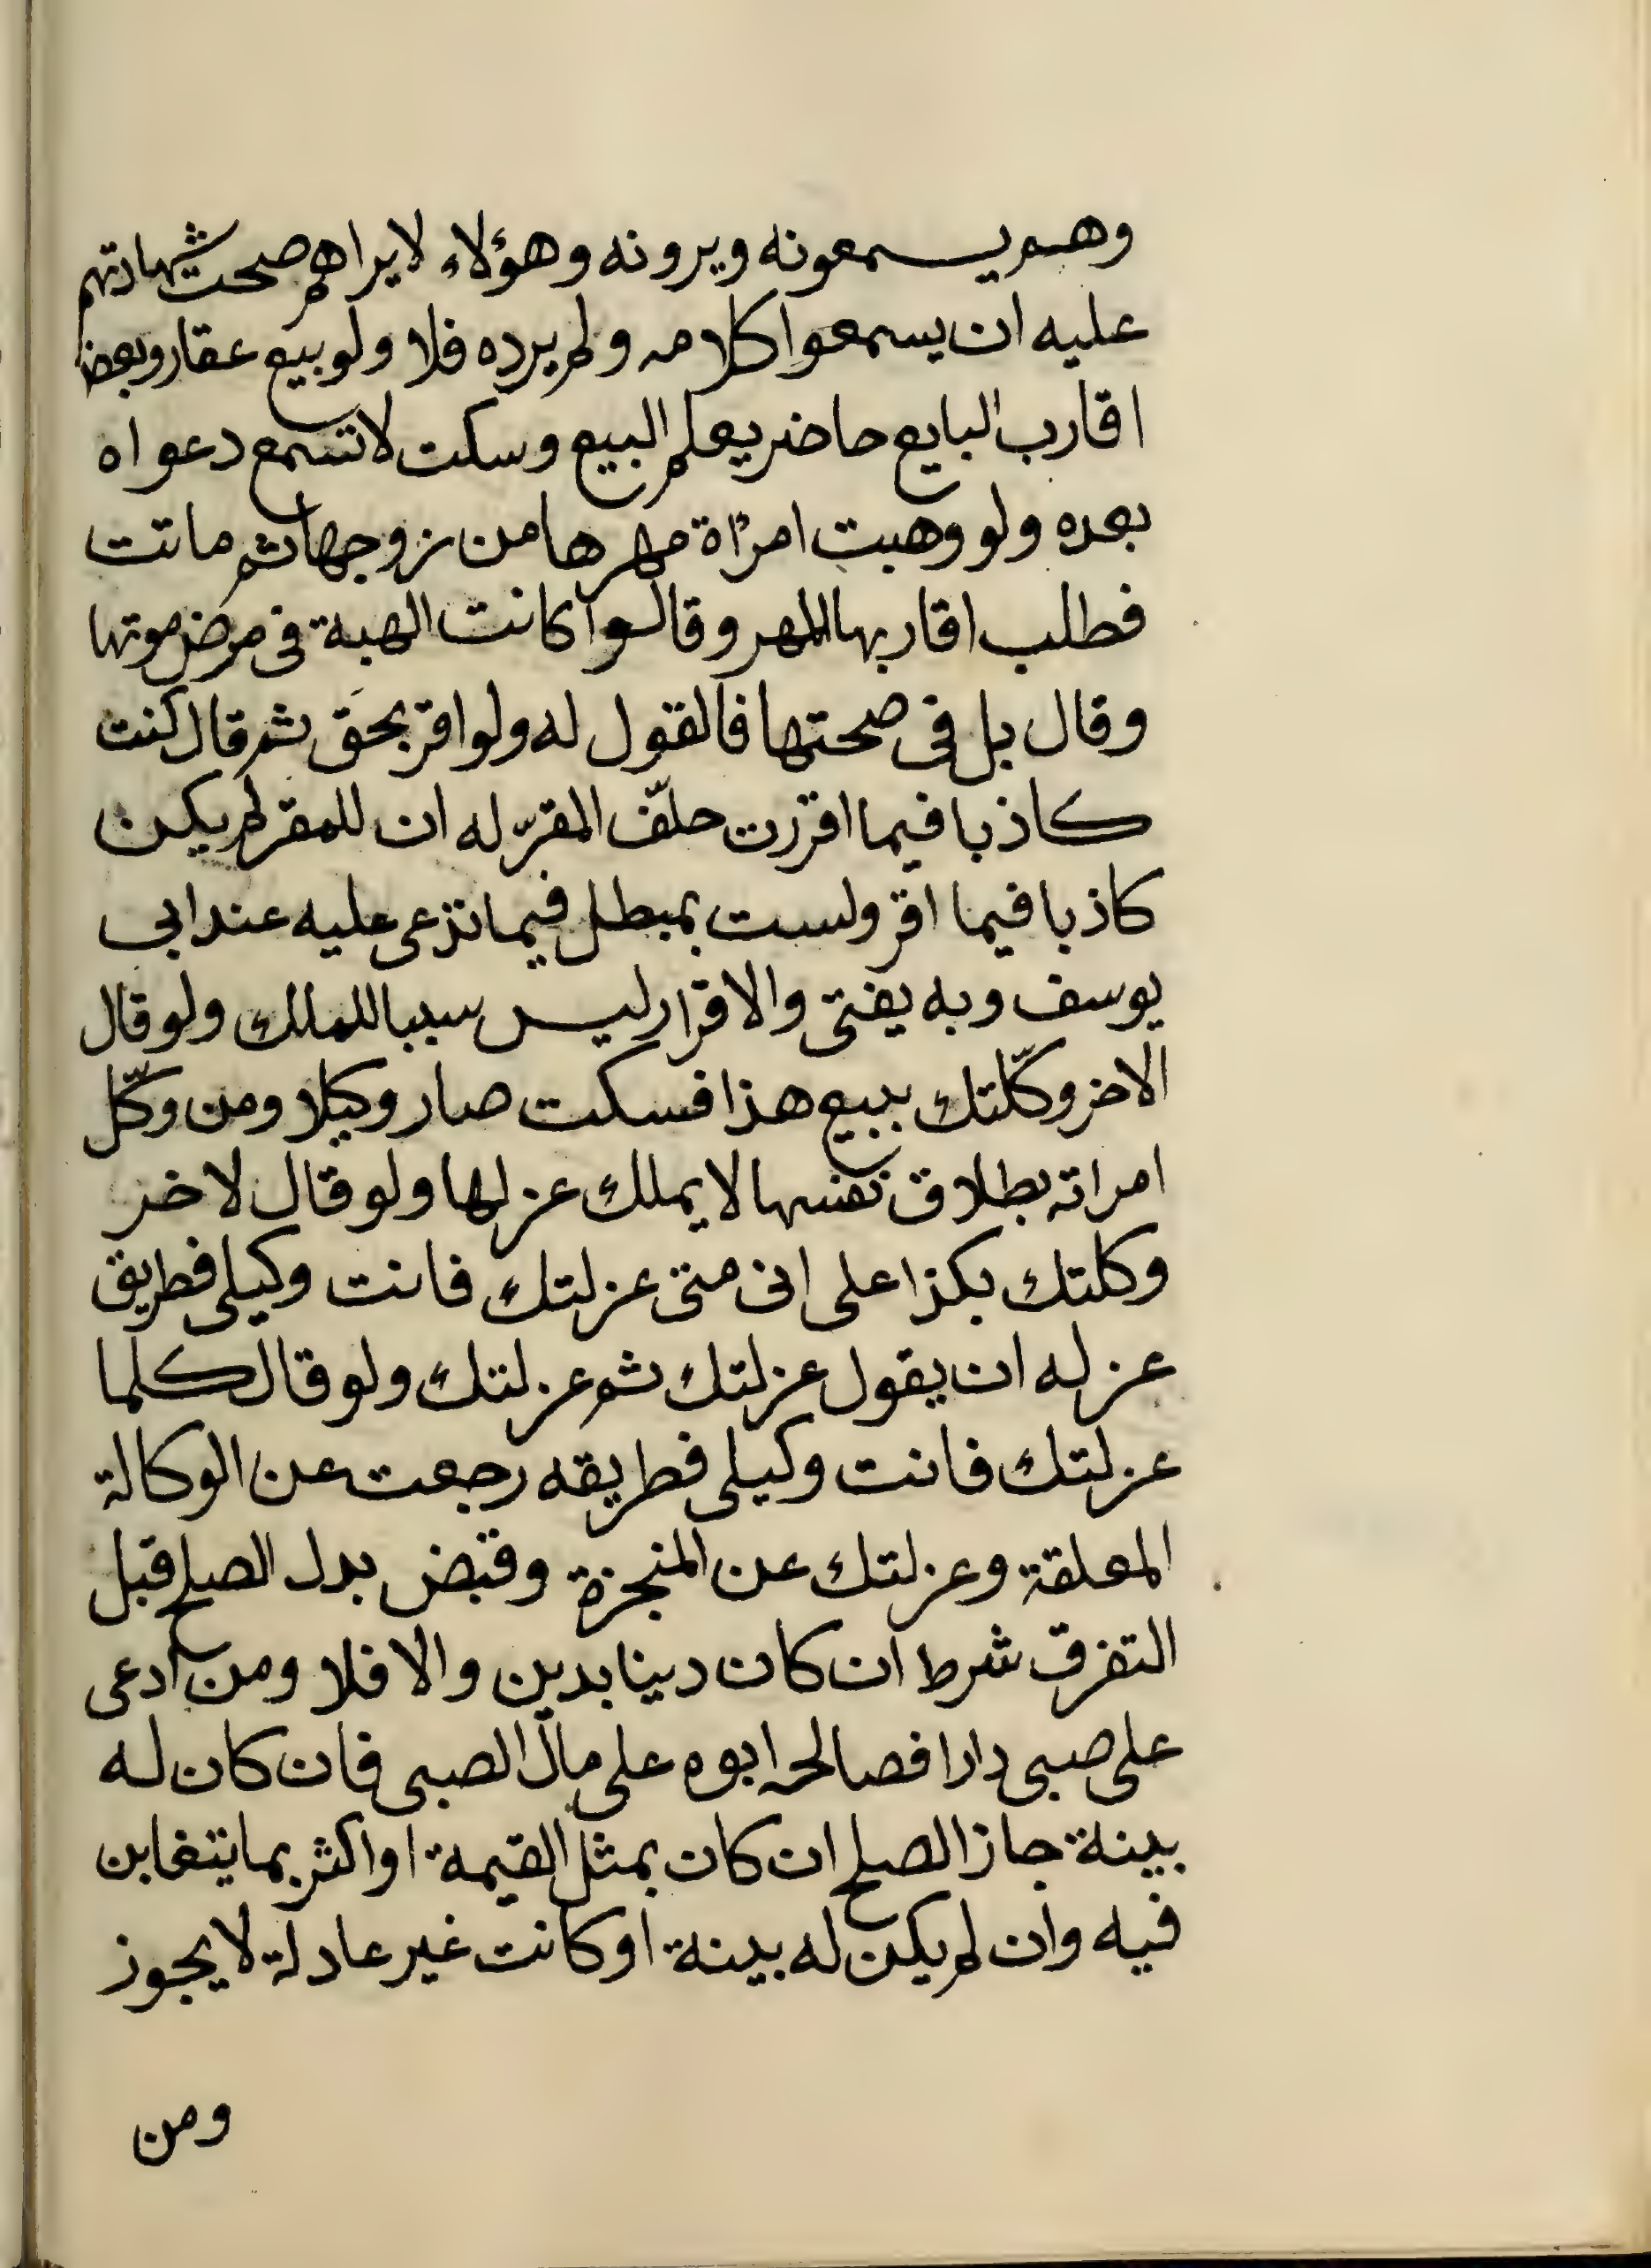 وهم يسمعونه ويرونه وهؤلاء لايراهم صحت شهادتهم
عليه ان يسمعوا كلامه ولم يرده فلا ولو بيع عقار وبعض
اقارب البايع حاضر يعلم البيع وسكت لاتسمع دعواه
بعده ولو وهبت امرأة مهرها من زوجها ثم ماتت
فطلب اقاربها المهر وقالوا كانت الهبة فى مرض موتها
وقال بل فى صحتها فالقول له ولو اقر بحق ثم قال كنت
كاذبا فيما اقررت حلّف المقرّ له ان للمقر لم يكن
كاذبا فيما اقر ولست بمبطل فيما تدعى عليه عند ابى
يوسف وبه يفتى والاقرار ليس سببا للملك ولو قال
الاخر وكّلتك ببيع هذا فسكت صار وكيلا ومن وكّل
امراته بطلاق نفسها لا يملك عزلها ولو قال لاخر
وكلتك بكذا على انى متى عزلتك فانت وكيلى فطريق
عزله ان يقول عزلتك ثم عزلتك ولو قال كلما
عزلتك فانت وكيلى فطريقه رجعت عن الوكالة
المعلقة وعزلتك عن المنجزة وقبض بدل الصلح قبل
التفرق شرط ان كان دينا بدين والا فلا ومن ادعى
على صبى دارا فصالحه ابوه على مال الصبى فان كان له
بينة جاز الصلح ان كان بمثل القيمة او اكثر بما يتغابن
فيه وان لم يكن له بينة او كانت غير عادلة لا يجوز
ومن